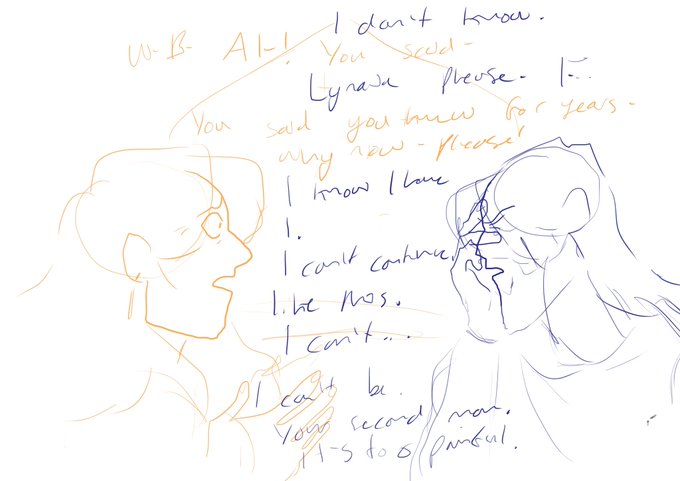 I don't know.
W-B- Al-! You said-
Lynava please. I...
You said you knew for years-
why now - please!
I know I have
I.
I can't continue.
like this.
I can't...
I can't be
Your second man.
It-s to o painful.